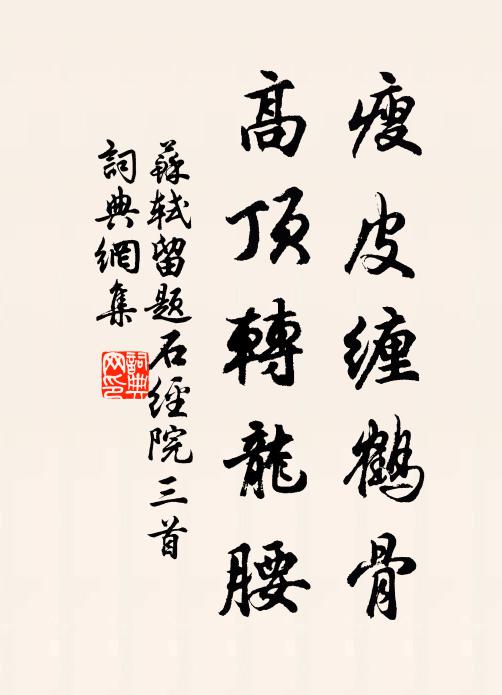 瘦皮纏鶴骨
高頂轉龍腰
蘇軾留題石經院三首
詞典網集
詞典网印